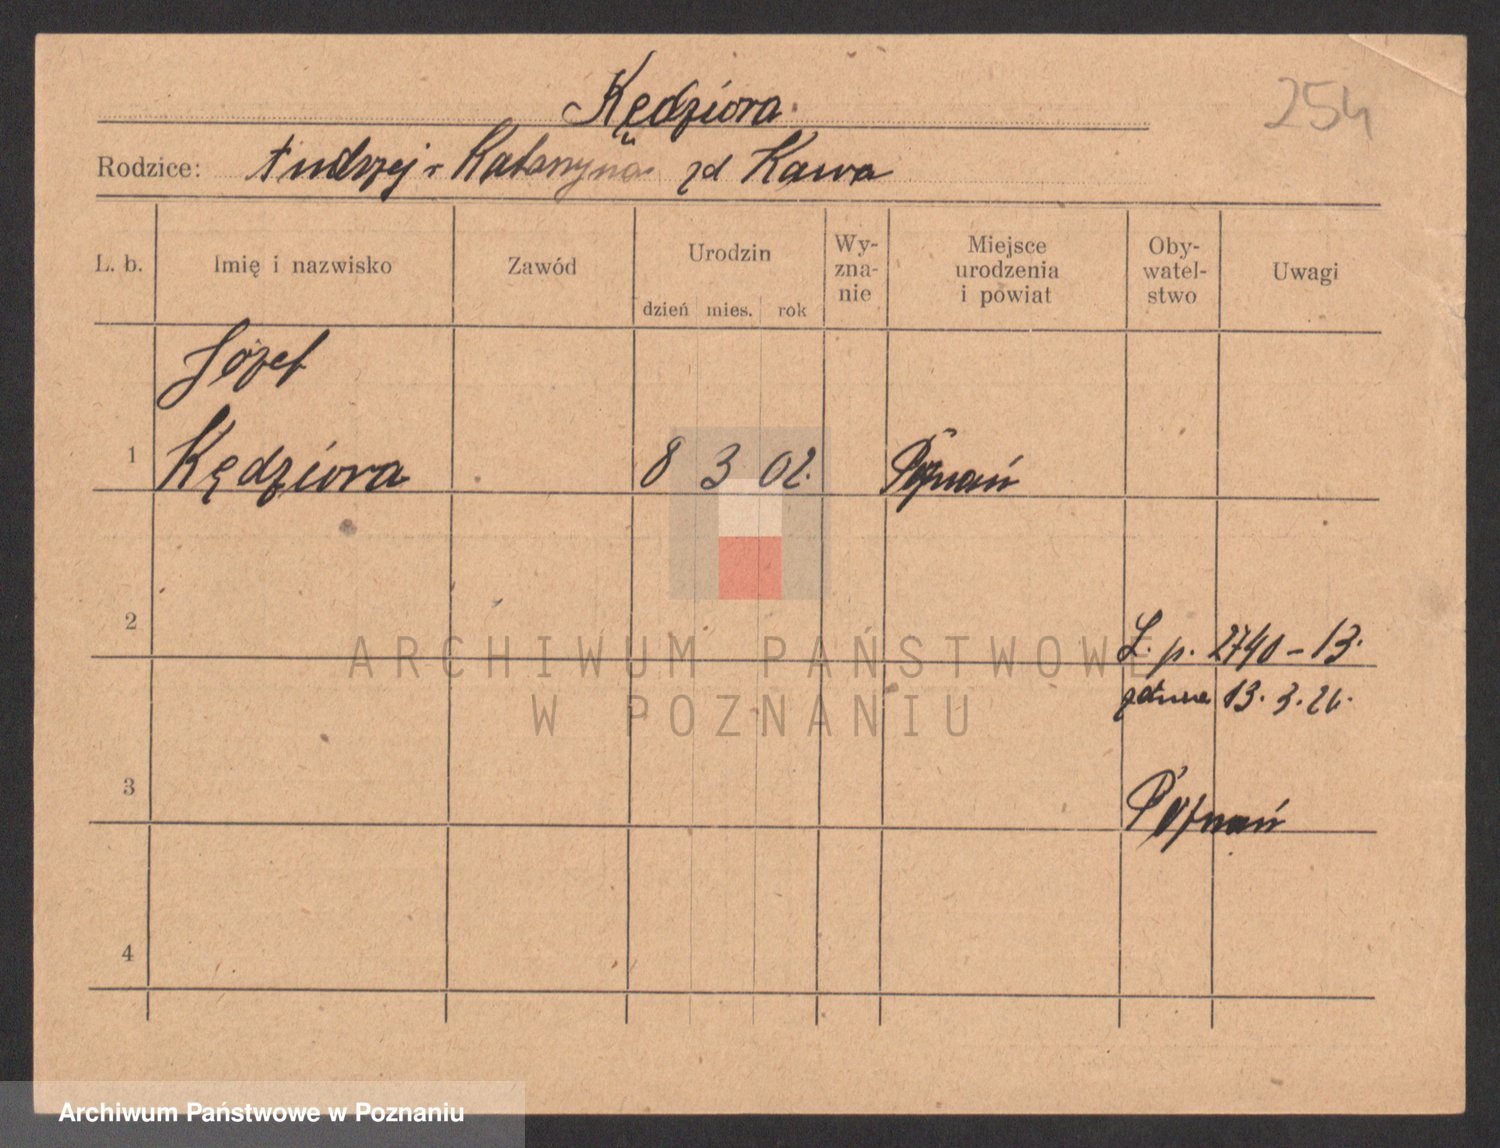 254
Kędziora
Rodzice: Andrzej i Katarzyna zd Kawa
L. b.
Imię i nazwisko
Zawód
Urodzin
dzień mies. rok
Wy-
zna-
nie
Miejsce
urodzenia
i powiat
Oby-
watel-
stwo
Uwagi
Józef
1 Kędziora 8 3 02. Poznań
2
L. p. 2740-13.
13. 3. 26.
3
Poznań
4
ARCHIWUM PAŃSTWOWE
W POZNANIU
Archiwum Państwowe w Poznaniu